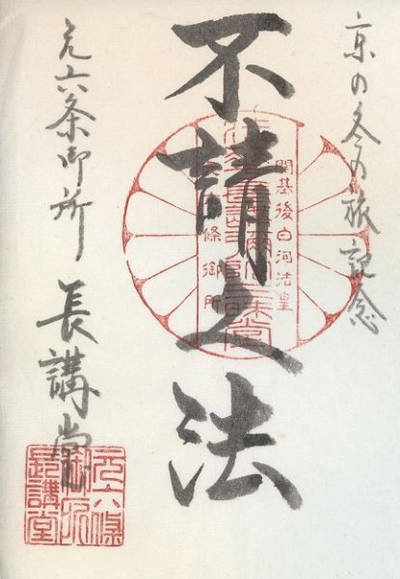 京の冬の旅記念
不請之法
開基後白河法皇
條御所
元六条御所 長講堂
元六條
御所
長講堂